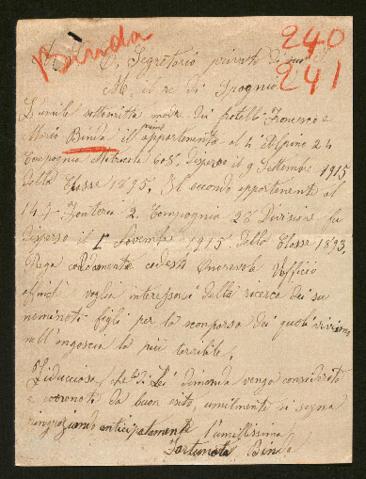 Binda
240
241
Segretario privato di
M. il re di Spagna
L'umile sottoscritta madre dei fratelli Francesco e
Mario Binda il primo appartenente al 4 Alpino 24
Compagnia Matricola 605 disperso il 9 Settembre 1915
della Classe 1895. Il secondo appartenente al
147 Fanteria 2 Compagnia 28 Divisione fu
disperso il 1 Novembre 1915 della Classe 1893.
Prega caldamente codesto Onorevole Ufficio
affinchè voglia interessarsi della ricerca dei su
nominati figli per la scomparsa dei quali vivian
nell'angoscia la più terribile.
Fiduciosa che di Lei dimanda venga considerata
e coronata da buon esito, umilmente si segna
ringraziando anticipatamente l'umilissima
Fortunata Binda